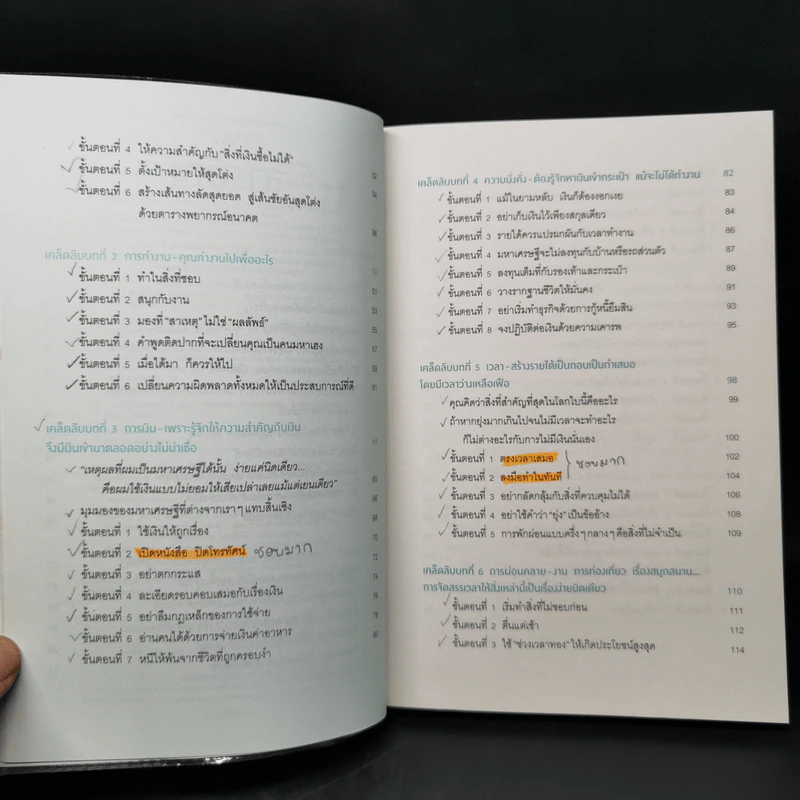 ขั้นตอนที่ 4 ให้ความสำคัญกับ "สิ่งที่เงินซื้อไม่ได้"
ขั้นตอนที่ 5 ตั้งเป้าหมายให้สุดโต่ง 32
ขั้นตอนที่ 6 สร้างเส้นทางลัดสุดยอด สู่เส้นชัยอันสุดโต่ง 34
ด้วยตารางพยากรณ์อนาคต
38
เคล็ดลับบทที่ 2 การทำงาน-คุณทำงานไปเพื่ออะไร
ขั้นตอนที่ 1 ทำในสิ่งที่ชอบ 50
ขั้นตอนที่ 2 สนุกกับงาน 51
ขั้นตอนที่ 3 มองที่ "สาเหตุ" ไม่ใช่ "ผลลัพธ์" 53
ขั้นตอนที่ 4 คำพูดติดปากที่จะเปลี่ยนคุณเป็นคนมหาเฮง 55
ขั้นตอนที่ 5 เมื่อได้มา ก็ควรให้ไป 57
ขั้นตอนที่ 6 เปลี่ยนความผิดพลาดทั้งหมดให้เป็นประสบการณ์ที่ดี 59
61
เคล็ดลับบทที่ 3 การเงิน-เพราะรู้จักให้ความสำคัญกับเงิน
จึงมีเงินเข้ามาตลอดอย่างไม่น่าเชื่อ 64
"เหตุผลที่ผมเป็นมหาเศรษฐีได้นั้น ง่ายแค่นิดเดียว...
คือผมใช้เงินแบบไม่ยอมให้เสียเปล่าเลยแม้แต่เยนเดียว" 65
มุมมองของมหาเศรษฐีที่ต่างจากเราๆ แทบสิ้นเชิง 68
ขั้นตอนที่ 1 ใช้เงินให้ถูกเรื่อง
ขั้นตอนที่ 2 เปิดหนังสือ ปิดโทรทัศน์ ชอบมาก 70
ขั้นตอนที่ 3 อย่าตกกระแส 72
ขั้นตอนที่ 4 ละเอียดรอบคอบเสมอกับเรื่องเงิน 74
ขั้นตอนที่ 5 อย่าลืมกฎเหล็กของการใช้จ่าย 76
ขั้นตอนที่ 6 อ่านคนได้ด้วยการจ่ายเงินค่าอาหาร 78
ขั้นตอนที่ 7 หนีให้พ้นจากชีวิตที่ถูกครอบงำ 80
เคล็ดลับบทที่ 4 ความมั่งคั่ง-ต้องรู้จักหาเงินเข้ากระเป๋า แม้จะไม่ได้ทำงาน 82
ขั้นตอนที่ 1 แม้ในยามหลับ เงินก็ต้องงอกเงย 83
ขั้นตอนที่ 2 อย่าเก็บเงินไว้เพียงสกุลเดียว 84
ขั้นตอนที่ 3 รายได้ควรแปรผกผันกับเวลาทำงาน 86
ขั้นตอนที่ 4 มหาเศรษฐีจะไม่ลงทุนกับบ้านหรือรถส่วนตัว 87
ขั้นตอนที่ 5 ลงทุนเต็มที่กับรองเท้าและกระเป๋า 89
ขั้นตอนที่ 6 วางรากฐานชีวิตให้มั่นคง 91
ขั้นตอนที่ 7 อย่าเริ่มทำธุรกิจด้วยการกู้หนี้ยืมสิน 93
ขั้นตอนที่ 8 จงปฏิบัติต่อเงินด้วยความเคารพ 95
เคล็ดลับบทที่ 5 เวลา-สร้างรายได้เป็นกอบเป็นกำเสมอ
โดยมีเวลาว่างเหลือเฟือ 98
คุณคิดว่าสิ่งที่สำคัญที่สุดในโลกใบนี้คืออะไร 99
ถ้าหากยุ่งมากเกินไปจนไม่มีเวลาจะทำอะไร
ก็ไม่ต่างอะไรกับการไม่มีเงินนั่นเอง 100
ขั้นตอนที่ 1 ตรงเวลาเสมอ 102
ขั้นตอนที่ 2 ลงมือทำในทันที ชอบมาก 104
ขั้นตอนที่ 3 อย่ากลัดกลุ้มกับสิ่งที่ควบคุมไม่ได้ 106
ขั้นตอนที่ 4 อย่าใช้คำว่า "ยุ่ง" เป็นข้ออ้าง 108
ขั้นตอนที่ 5 การพักผ่อนแบบครึ่งๆ กลางๆ คือสิ่งที่ไม่จำเป็น 109
เคล็ดลับบทที่ 6 การผ่อนคลาย-งาน การท่องเที่ยว เรื่องสนุกสนาน...
การจัดสรรเวลาให้สิ่งเหล่านี้เป็นเรื่องง่ายนิดเดียว 110
ขั้นตอนที่ 1 เริ่มทำสิ่งที่ชอบก่อน 111
ขั้นตอนที่ 2 ตื่นแต่เช้า 112
ขั้นตอนที่ 3 ใช้ "ช่วงเวลาทอง" ให้เกิดประโยชน์สูงสุด 114